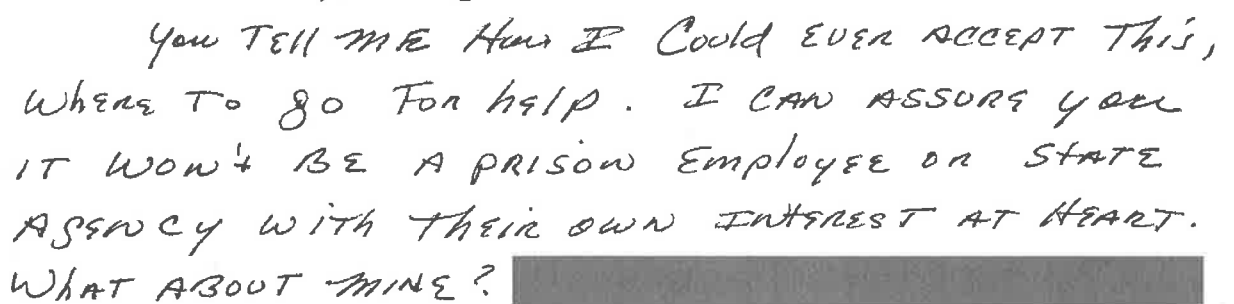 You TELL ME How I Could EVER ACCEPT This,
WhERE To go For hElp. I CAN ASSURE you
IT WON't BE A PRISON EmployEE OR StATE
AgENCY WITH ThEIR OWN INtEREST AT HEART.
WhAT ABOUT MINE?